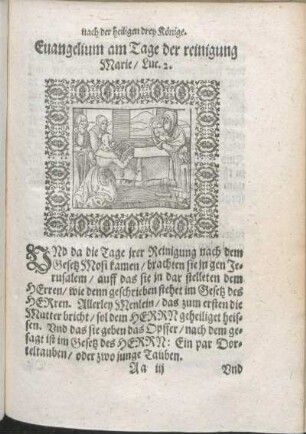 nach der heiligen drey Könige.
Euangelium am Tage der reinigung
Marie/ Luc. 2.
VNd da die Tage irer Reinigung nach dem
Gesetz Mosi kamen/ brachten sie in gen Je-
rusalem/ auff das sie in dar stelleten dem
HErren/ wie denn geschrieben stehet im Gesetz des
HERren. Allerley Menlein/ das zum ersten die
Mutter bricht/ sol dem HERRN geheiliget heis-
sen. Vnd das sie geben das Opffer/ nach dem ge-
sagt ist im Gesetz des HERRN: Ein par Dor-
teltauben/ oder zwo junge Tauben.
Aa iij Vnd